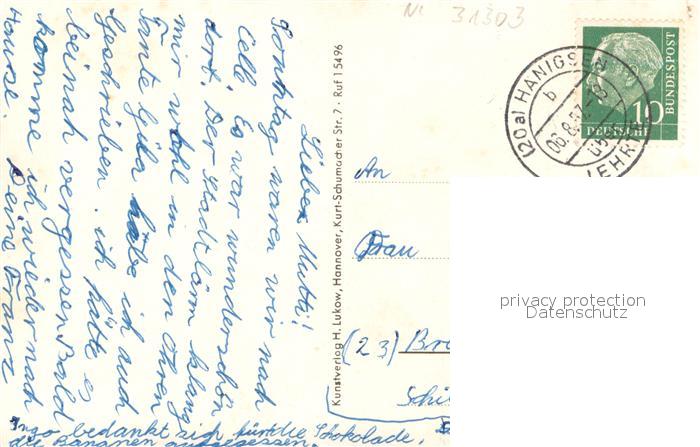 Lieber Mutti!
Sonntag waren wir nach
Celle Es war wunderschön
dort. Der Stadtlärm klang
mir wohl in den Ohren
Tante habe ich auch
geschrieben. ich hätte es
beinah vergessen Bald
komme ich wieder nach
Hause. Deine Franz
Ingo bedankt sich für die Schokolade,
die Bananen aufgegessen.
Kunstverlag H. Lukow, Hannover, Kurt-Schumacher Str. 7 · Ruf 15496
№ 31303
(20a) HÄNIGSEN
b
06.8.57
üb. LEHRTE
10
DEUTSCHE
BUNDESPOST
An
Frau
(23) Bre
Schi
privacy protection
Datenschutz